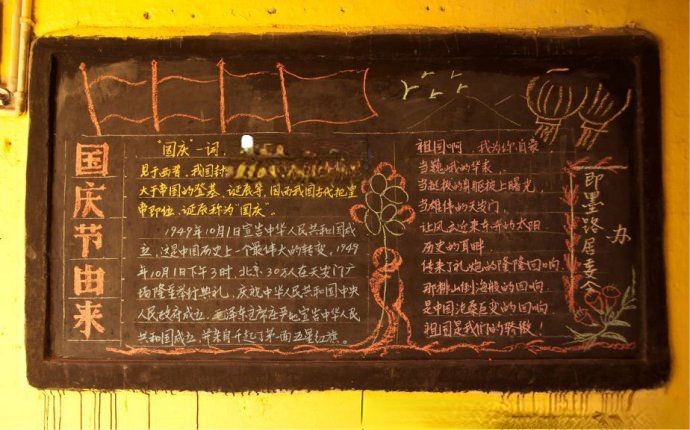 国庆节由来
"国庆"一词,
见于西晋,我国封
大于帝国的登基、诞辰等,因而我国古代把皇
帝即位、诞辰称为"国庆"。
1949年10月1日宣告中华人民共和国成
立,这是中国历史上一个最伟大的转变。1949
年10月1日下午3时,北京30万人在天安门广
场隆重举行典礼,庆祝中华人民共和国中央
人民政府成立,毛泽东主席庄严地宣告中华人民
共和国成立,并亲自升起了第一面五星红旗。
祖国啊,我为你自豪
当巍峨的华表,
当挺拔的身躯披上曙光,
当雄伟的天安门,
让风永远来东升的太阳
历史的耳畔,
传来了礼炮的隆隆回响,
那排山倒海般的回响,
是中国沧桑巨变的回响,
祖国是我们的骄傲!
即墨路居委会
办